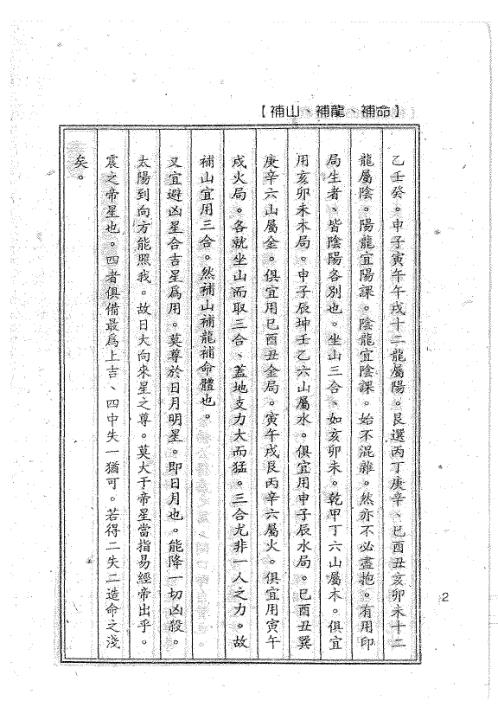 【補山、補龍、補命】
乙壬癸。申子寅午午戌十二龍屬陽。艮選丙丁庚辛、巳酉丑亥卯未十二
龍屬陰。陽龍宜陽課。陰龍宜陰課。始不混雜。然亦不必盡抱。有用印
局生者、皆陰陽各別也。坐山三合、如亥卯未。乾甲丁六山屬木。俱宜
用亥卯未木局。申子辰坤壬乙六山屬水。俱宜用申子辰水局。巳酉丑巽
庚辛六山屬金。俱宜用巳酉丑金局。寅午戌艮丙辛六山屬火。俱宜用寅午
戌火局。各就坐山而取三合、蓋地支力大而猛。三合尤非一人之力。故
補山宜用三合。然補山補龍補命體也。
又宜避凶星合吉星爲用。莫尊於日月明星。即日月也。能降一切凶殺。
太陽到向方能照我。故日大向來星之尊。莫大于帝星當指易經帝出乎。
震之帝星也。四者俱備最爲上吉、四中失一猶可。若得二失二造命之淺
矣。
2